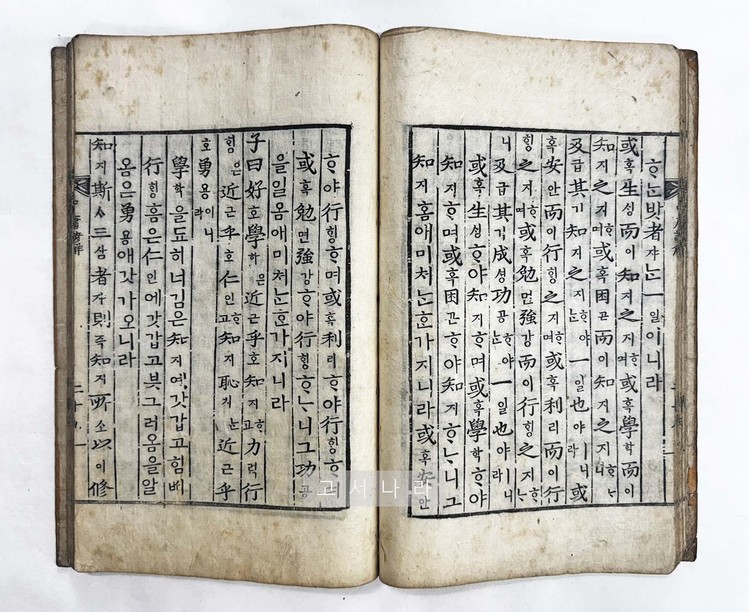 ᄒᆞᄂᆞᆫ밧者쟈ᄂᆞᆫ一일이니라
或혹生ᄉᆡᆼ而이知지之지ᄒᆞ며或혹學ᄒᆞᆨ而이
知지之지ᄒᆞ며或혹困곤而이知지之지ᄒᆞᄂᆞ니
及급其기知지之지ᄒᆞ야ᄂᆞᆫ一일也야ㅣ니라或
혹安안而이行ᄒᆡᆼ之지ᄒᆞ며或혹利리而이行
ᄒᆡᆼ之지ᄒᆞ며或혹勉면強강而이行ᄒᆡᆼ之지ᄒᆞᄂᆞ
니及급其기成셩功공ᄒᆞ야ᄂᆞᆫ一일也야ㅣ니라
或혹生ᄉᆡᆼᄒᆞ야知지ᄒᆞ며或혹學ᄒᆞᆨᄒᆞ야
知지ᄒᆞ며或혹困곤ᄒᆞ야知지ᄒᆞᄂᆞ니그
知지홈애미쳐ᄂᆞᆫᄒᆞᆫ가지니라或혹安안
ᄒᆞ야行ᄒᆡᆼᄒᆞ며或혹利리ᄒᆞ야行ᄒᆡᆼᄒᆞ며
或혹勉면強강ᄒᆞ야行ᄒᆡᆼᄒᆞᄂᆞ니그功공
을일옴애미쳐ᄂᆞᆫᄒᆞᆫ가지니라
子曰好호學ᄒᆞᆨ은近근乎호知지ᄒᆞ고力력行
ᄒᆡᆼ은近근乎호仁인ᄒᆞ고知지恥티ᄂᆞᆫ近근乎
호勇용이니라
學ᄒᆞᆨ을됴히너김은知지예갓갑고힘ᄡᅥ
行ᄒᆡᆼ홈은仁인에갓갑고붓그러옴을알
옴은勇용애갓가오니라
知지斯ᄉᆞ三삼者쟈則즉知지所소以이修
고서나라